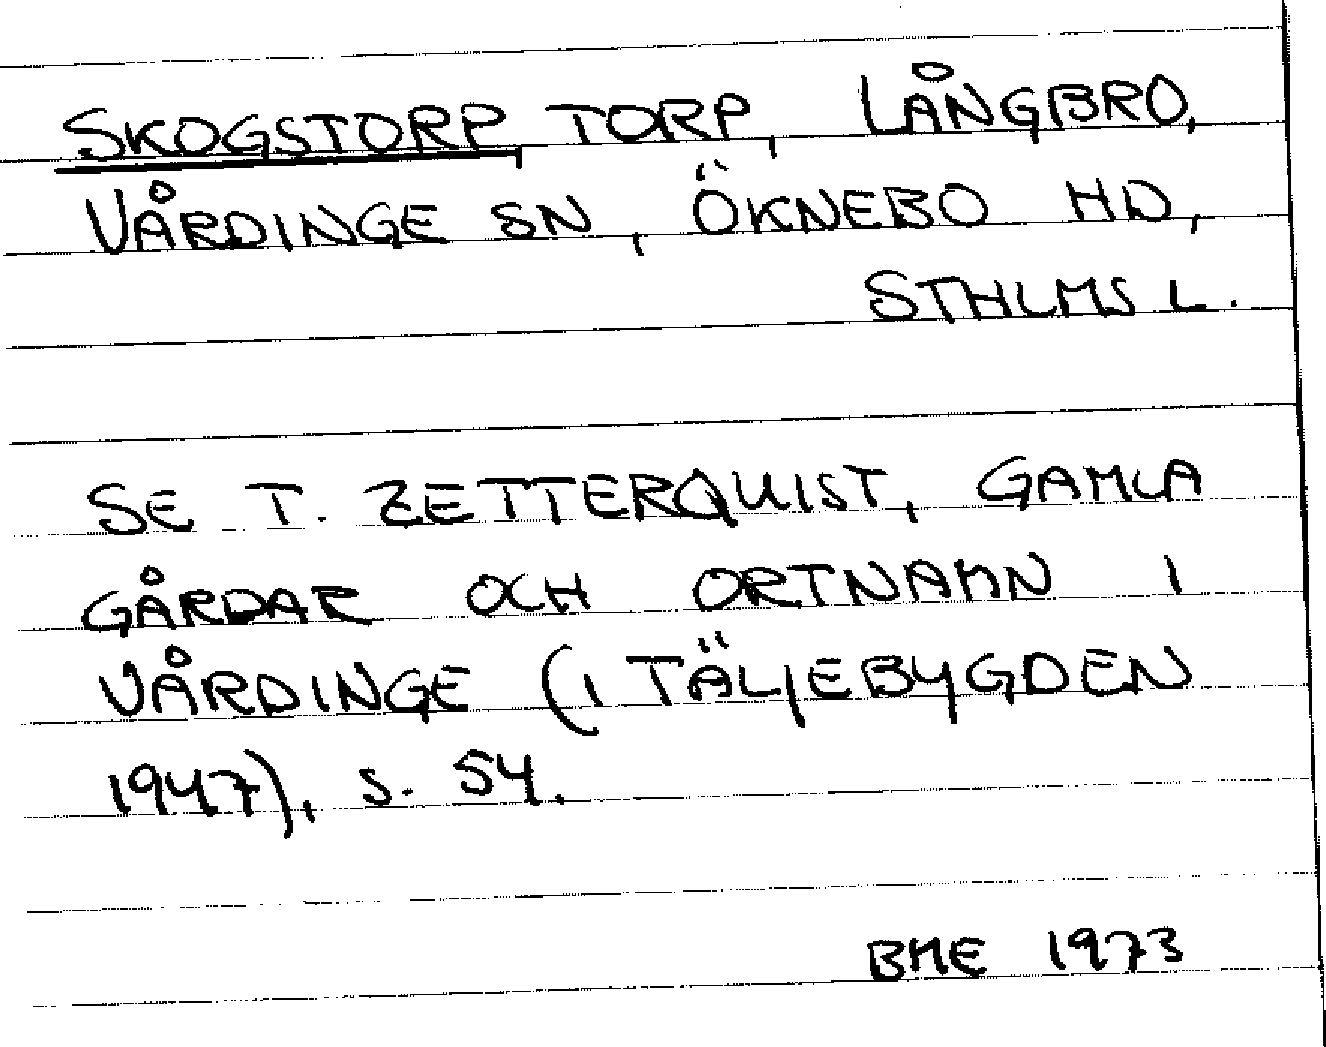 SKOGSTORP, TORP, LÅNGBRO,
VÅRDINGE SN, ÖKNEBO HD,
STHLMS L.
SE T. ZETTERQUIST, GAMLA
GÅRDAR OCH ORTNAMN I
VÅRDINGE (I TÄLJEBYGDEN
1947), S. 54.
BME 1973